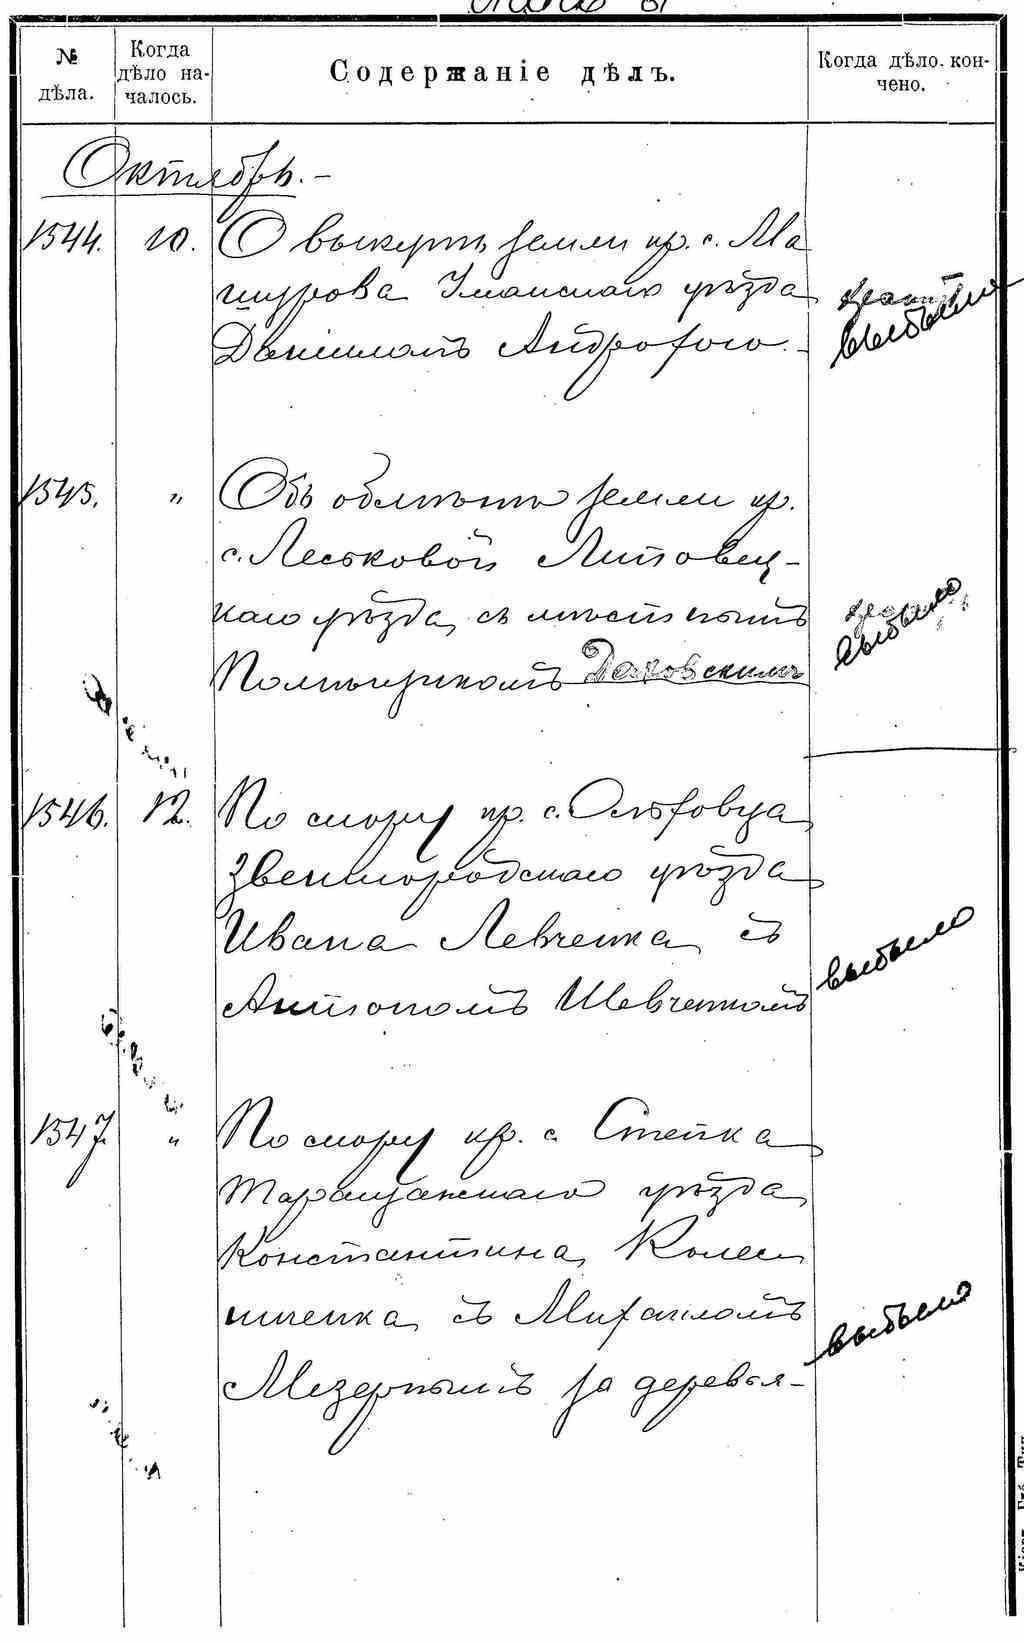 № дѣла.
Когда дѣло на-
чалось.
Содержаніе дѣлъ.
Когда дѣло кон-
чено.
Октябрь.-
1544. 10. О выкупѣ земли кр. с. Ма
шурова Уманскаго уѣзда
Даниломъ Андрофого.-
выбыло
1545. " Объ обмѣнѣ земли кр.
с. Леськовой Липовец-
каго уѣзда, съ мѣстнымъ
Помѣщикомъ Даховскимъ
выбыло
1546. 12. По спору кр. с. Ольховца
Звенигородскаго уѣзда
Ивана Левченка, съ
Антономъ Шевченкомъ
выбыло
1547. " По спору кр. с. Степка
Таращанскаго уѣзда,
Константина Колес
ниченка, съ Михаиломъ
Мезернымъ за деревья-
выбыло